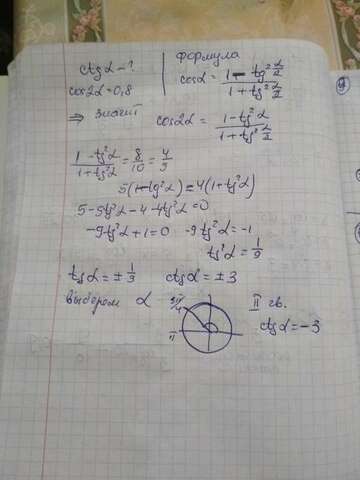 ctgα - ?
cos2α = 0,8
⇒ значит
формула
cosα = (1 - tg² α/2) / (1 + tg² α/2)
cos2α = (1 - tg²α) / (1 + tg²α)
(1 - tg²α) / (1 + tg²α) = 8/10 = 4/5
5(1 - tg²α) = 4(1 + tg²α)
5 - 5tg²α - 4 - 4tg²α = 0
-9tg²α + 1 = 0 -9tg²α = -1
tg²α = 1/9
tgα = ± 1/3 ctgα = ± 3
выберем α
3π/4
π
II чв.
ctgα = -3